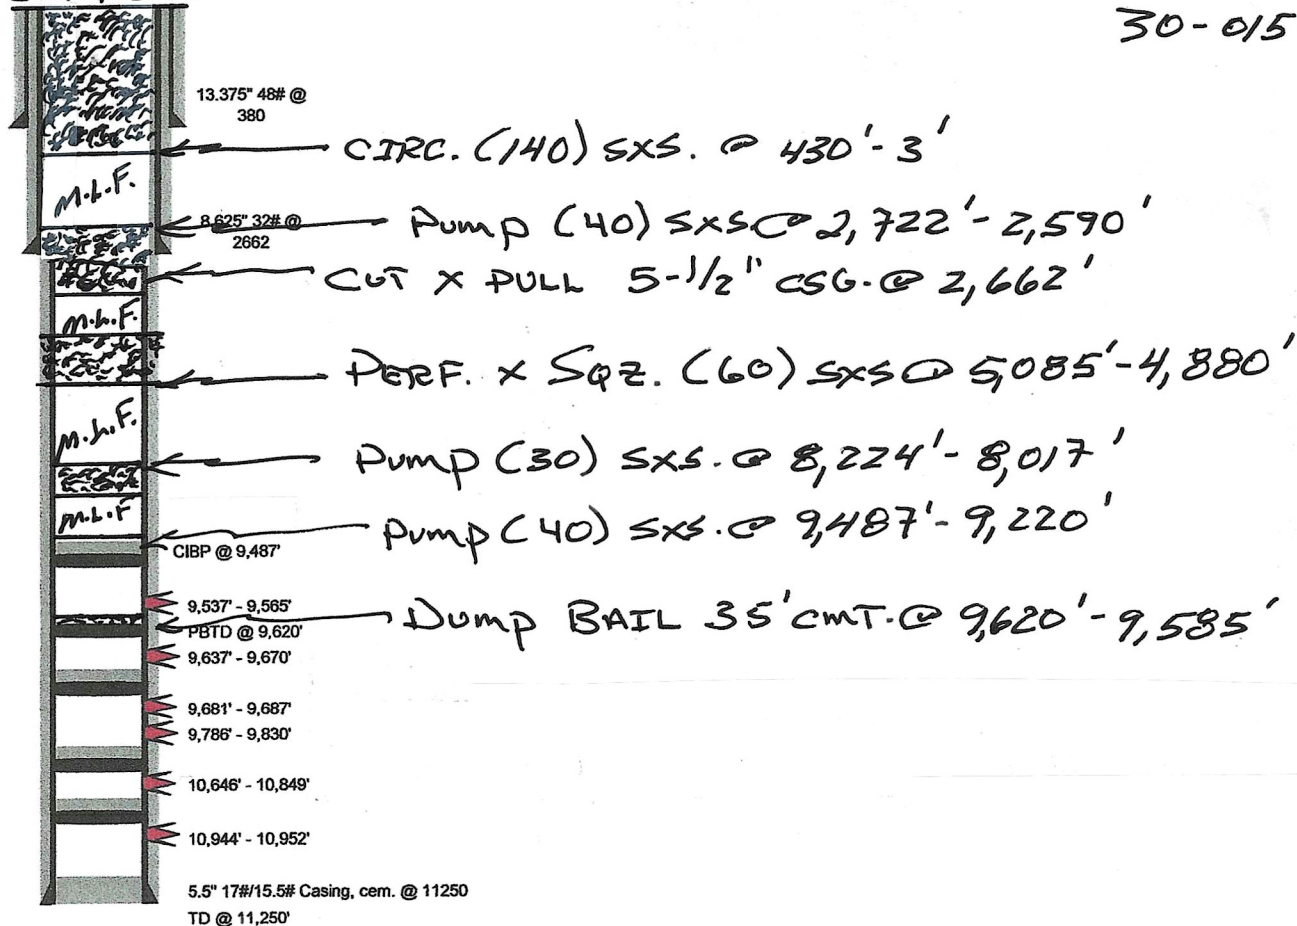 30-015
13.375" 48# @
380
CIRC. (140) SXS. @ 430'-3'
M.L.F.
8.625" 32# @
2662
Pump (40) SXS @ 2,722'-2,590'
CUT X PULL 5-1/2" CSG. @ 2,662'
M.L.F.
PERF. X SQZ. (60) SXS @ 5,085'-4,880'
M.L.F.
Pump (30) SXS. @ 8,224'-8,017'
M.L.F
Pump (40) SXS. @ 9,487'-9,220'
CIBP @ 9,487'
9,537' - 9,565'
Dump BAIL 35' CMT. @ 9,620'-9,585'
PBTD @ 9,620'
9,637' - 9,670'
9,681' - 9,687'
9,786' - 9,830'
10,646' - 10,849'
10,944' - 10,952'
5.5" 17#/15.5# Casing, cem. @ 11250
TD @ 11,250'